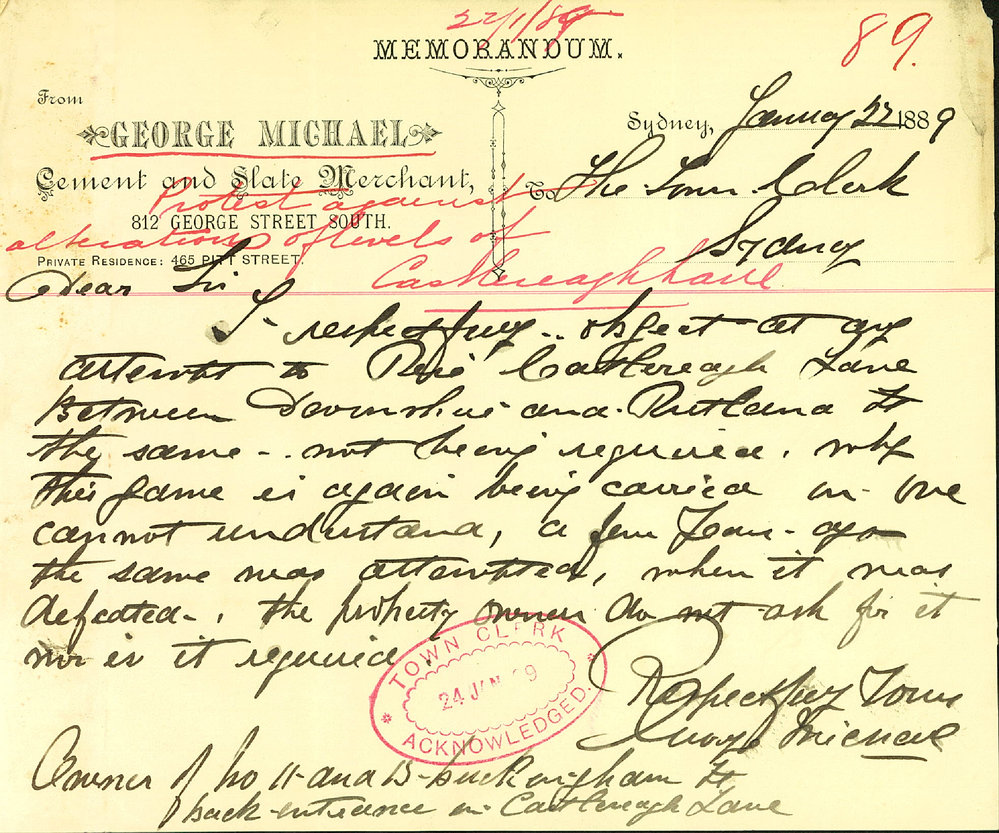 22/1/89
MEMORANDUM.
89.
From
GEORGE MICHAEL
Cement and Slate Merchant,
812 GEORGE STREET SOUTH.
PRIVATE RESIDENCE: 465 PITT STREET.
Sydney, January 22 1889
To The Town Clerk
Sydney
Protest against
alteration of levels of
Castlereagh Lane
Dear Sir
I respectfully object at any
attempt to Castlereagh Lane
Between Devonshire and Rutland St
the same not being required. why
this game is again being carried on one
cannot understand, a few Years ago
the same was attempted, when it was
defeated, the property owners do not ask for it
nor is it required.
Respectfuly Yours
George Michael
TOWN CLERK
24 JAN 89
ACKNOWLEDGED.
Owner of No 11 and 13 Buckingham St
back entrance in Castlereagh Lane